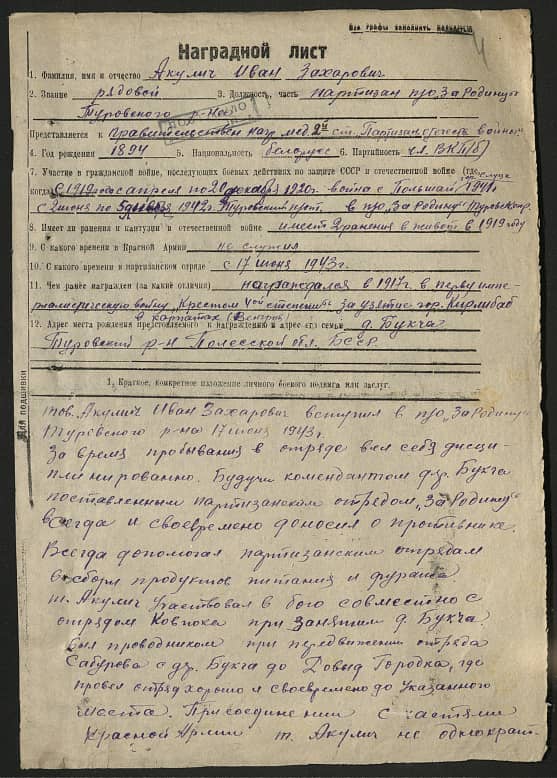 Все графы заполнять полностью
4
Наградной лист
1. Фамилия, имя и отчество Акулич Иван Захарович
2. Звание рядовой 3. Должность, часть партизан п/о „За Родину"
Туровского р-на
Представляется к правительствен нагр. мед. 2й ст. „Партизан отечеств войны"
4. Год рождения 1894 5. Национальность белорус 6. Партийность чл. ВКП(б)
7. Участие в гражданской войне, последующих боевых действиях по защите СССР и отечественной войне (где,
когда) С 1919 апреля по 20 декабря 1920г. война с Польшай
с 2 июня по 1942г. Туровский в п/о „За Родину" Туров
8. Имеет ли ранения и контузии в отечественной войне имеет 2 ранения в живот в 1919 году
9. С какого времени в Красной Армии не служил
10. С какого времени в партизанском отряде с 17 июня 1943г.
11. Чем ранее награжден (за какие отличия) награждался в 1917г. в первую импе-
риалистическую войну „Крестом 4ой степени" за узятие гор. Кирлибаб
в карпатах
12. Адрес места рождения представляемого к награждению и адрес его семьи д. Букча
Туровский р-н Полесской обл. БССР.
1. Краткое, конкретное изложение личного боевого подвига или заслуг.
Для подшивки
тов. Акулич Иван Захарович вступил в п/о „За Родину"
Туровского р-на 17 июня 1943г.
За время пробывания в отряде вел себя дисци-
плинированно. Будучи комендантом д. Букча
поставленным партизанским отрядом „За Родину"
всегда и своевремено доносил о противнике.
Всегда допомогал партизанским отрядам
в сборе продуктов питания и фуража.
т. Акулич участвовал в бою совместно с
отрядом Ковпока при занятии д. Букча.
был проводником при передвижении отряда
Сабурова с д. Букча до Довыд Городка, где
провел отряд хорошо и своевремено до указанного
места. Присоединении с частями
Красной Армии т. Акулич не однократ-